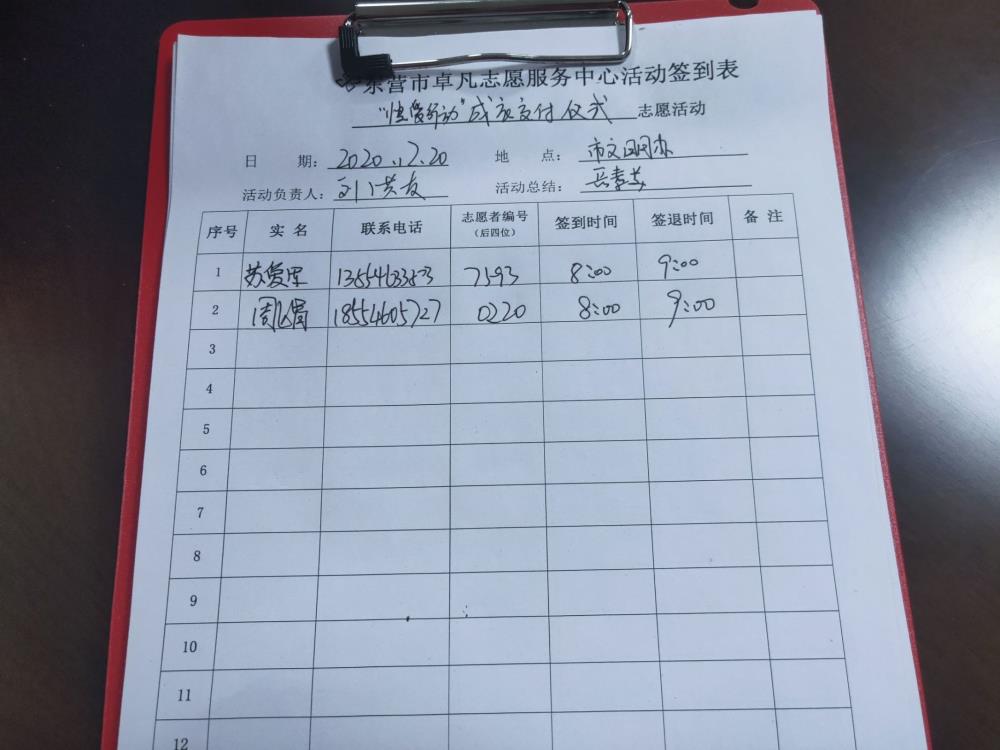 东营市卓凡志愿服务中心活动签到表
成衣交付仪式 志愿活动
日 期: 2020.12.20 地 点: 市文明办
活动负责人: 活动总结:
序号 实 名 联系电话 志愿者编号 (后四位) 签到时间 签退时间 备 注
1 苏爱军 7593 8:00 9:00
2 18554605727 0220 8:00 9:00
3
4
5
6
7
8
9
10
11
12